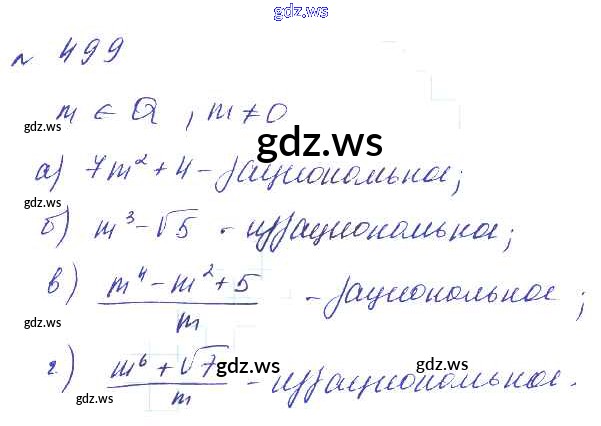 gdz.ws
№ 499
m ∈ Q, m ≠ 0
gdz.ws
gdz.ws
gdz.ws
а) 7m² + 4 - рациональное;
gdz.ws
б) m³ - √5 - иррациональное;
в) (m⁴ - m² + 5)/m - рациональное;
gdz.ws
gdz.ws
г) (m⁶ + √7)/m - иррациональное.
gdz.ws
gdz.ws
gdz.ws